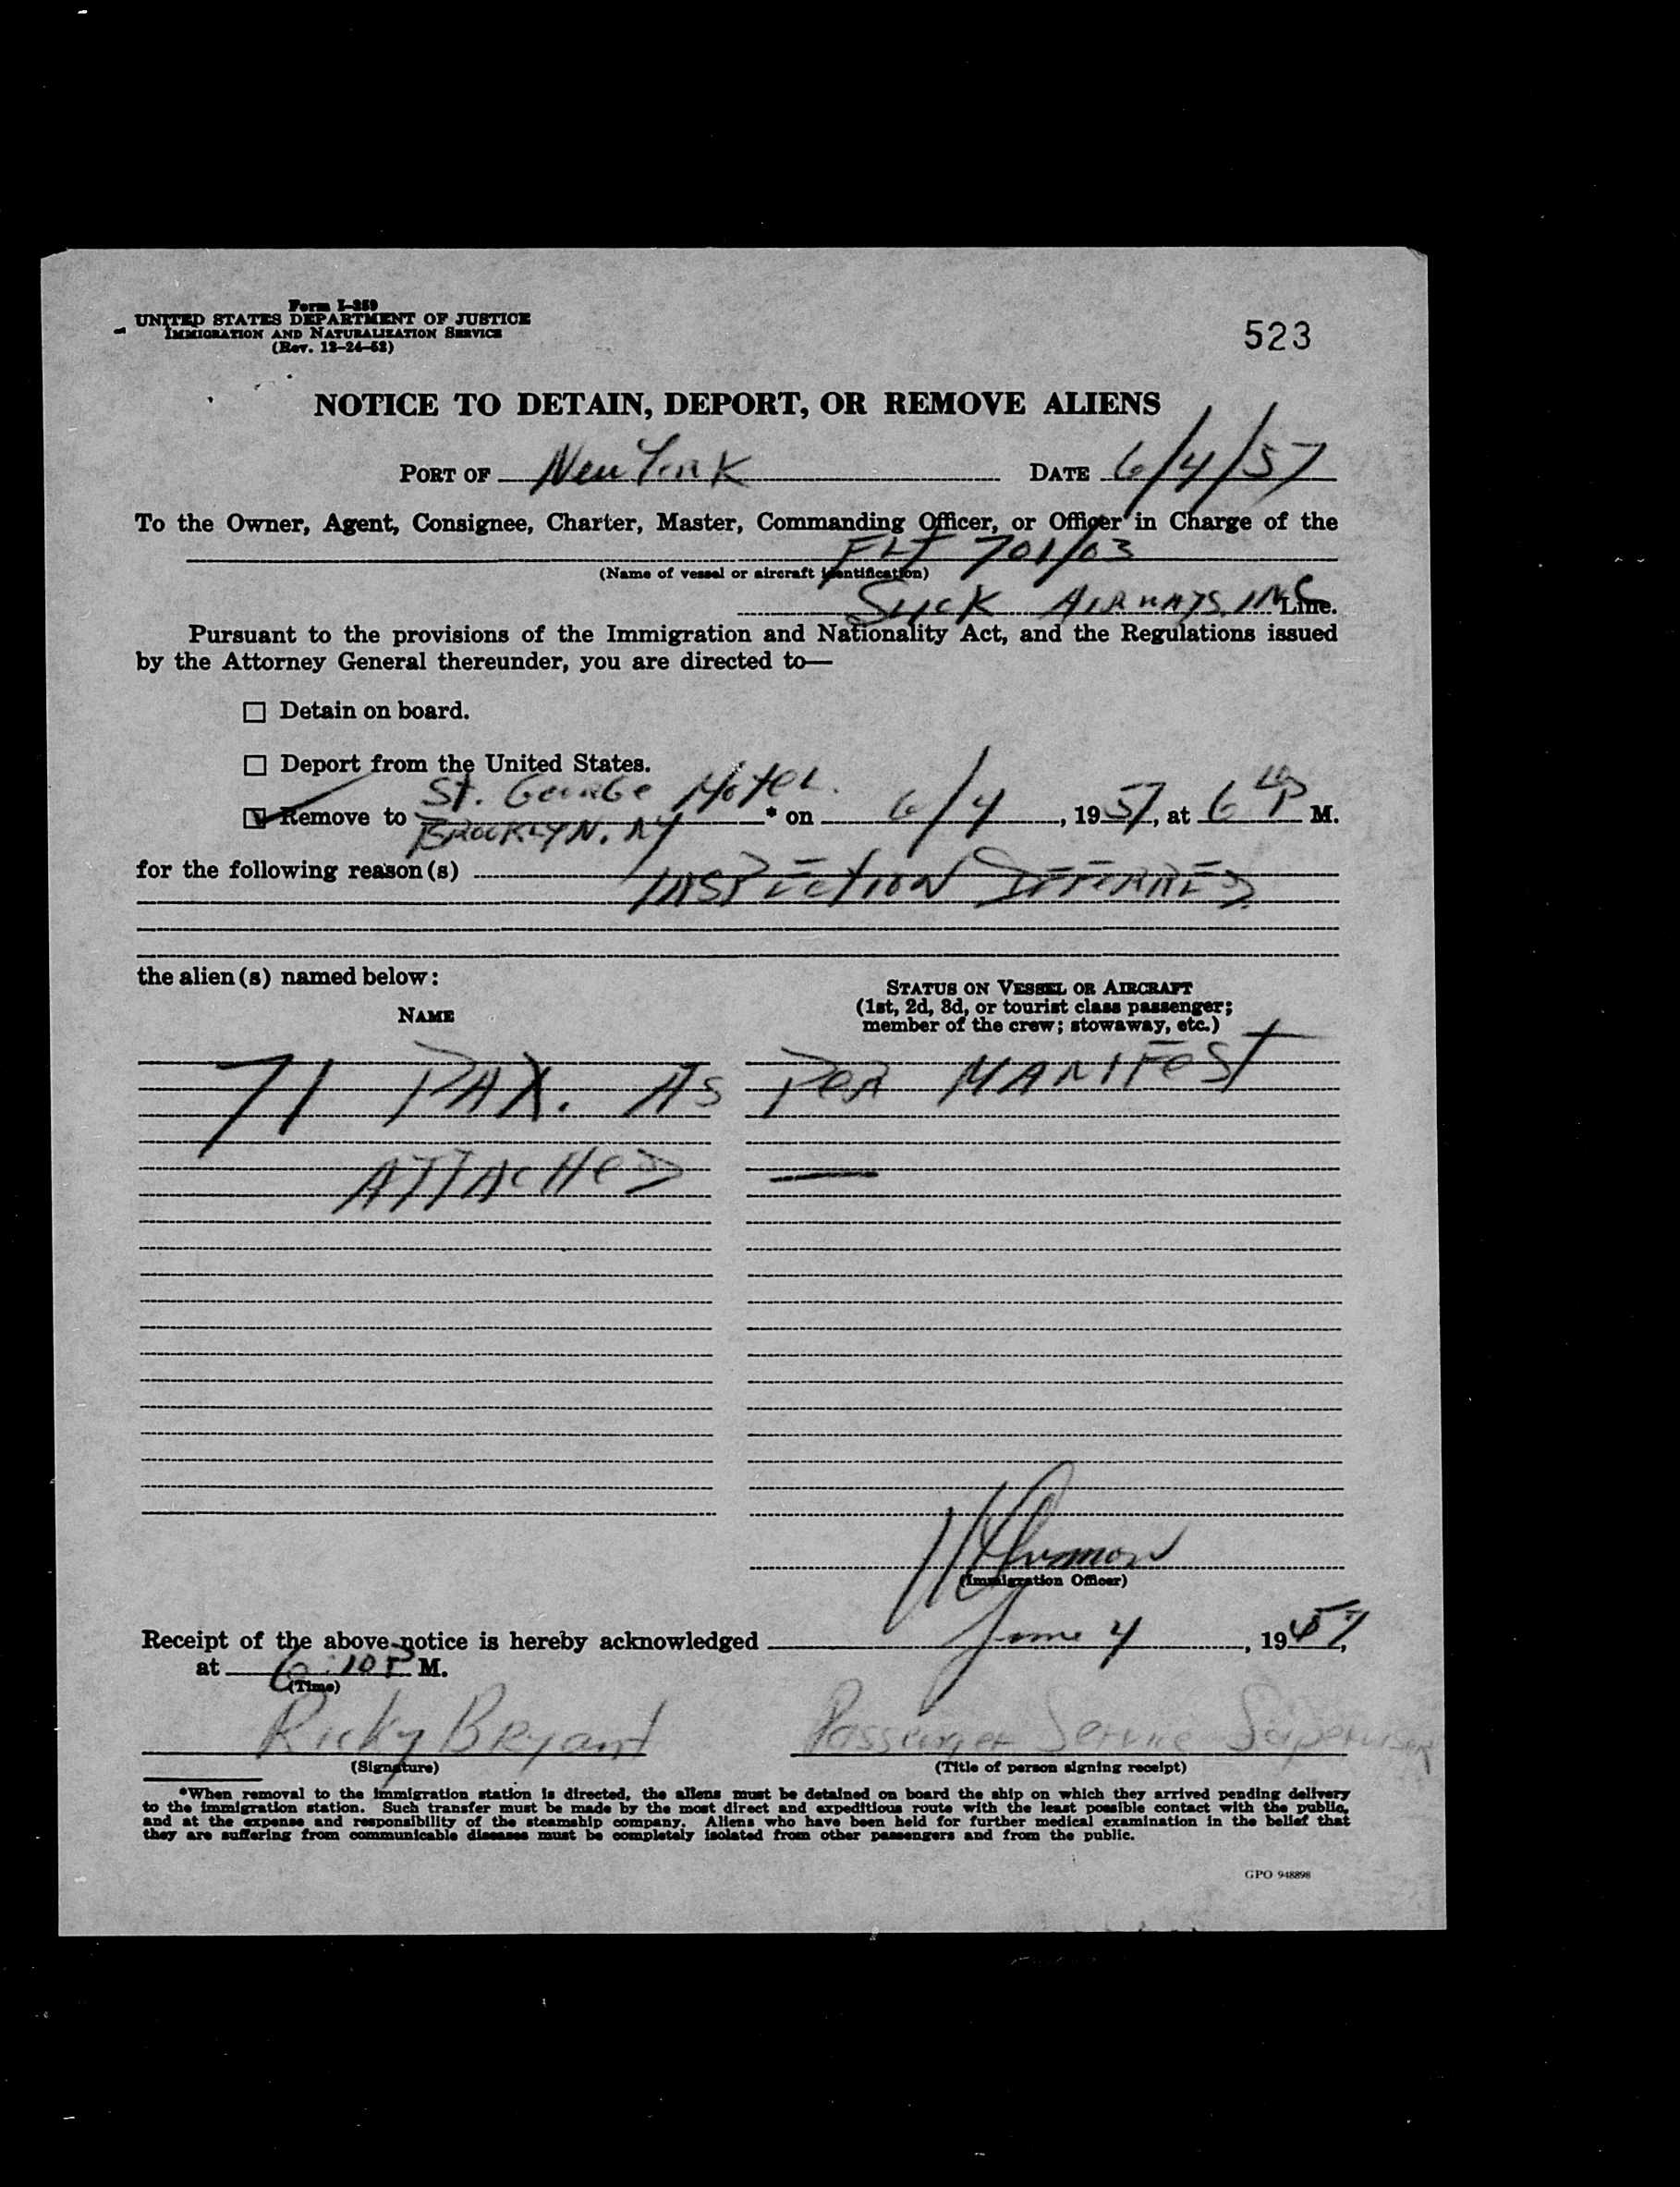 Form I-259
UNITED STATES DEPARTMENT OF JUSTICE
IMMIGRATION AND NATURALIZATION SERVICE
(Rev. 12-24-52)
523
NOTICE TO DETAIN, DEPORT, OR REMOVE ALIENS
PORT OF New York DATE 6/4/57
To the Owner, Agent, Consignee, Charter, Master, Commanding Officer, or Officer in Charge of the
FLT 701/03
(Name of vessel or aircraft identification)
SLICK AIRWAYS, INC Line.
Pursuant to the provisions of the Immigration and Nationality Act, and the Regulations issued
by the Attorney General thereunder, you are directed to—
Detain on board.
Deport from the United States.
St. George Hotel.
Remove to BROOKLYN. NY * on 6/4, 1957, at 6 P M.
for the following reason(s) INSPECTION DEFERRED
the alien(s) named below:
NAME
STATUS ON VESSEL OR AIRCRAFT
(1st, 2d, 3d, or tourist class passenger;
member of the crew; stowaway, etc.)
71 PAX. AS PER MANIFEST
ATTACHED —
(Immigration Officer)
Receipt of the above notice is hereby acknowledged June 4, 1957,
at 6:10 P M.
(Time)
Ricky Bryant Passenger Service Supervisor
(Signature) (Title of person signing receipt)
*When removal to the immigration station is directed, the aliens must be detained on board the ship on which they arrived pending delivery
to the immigration station. Such transfer must be made by the most direct and expeditious route with the least possible contact with the public,
and at the expense and responsibility of the steamship company. Aliens who have been held for further medical examination in the belief that
they are suffering from communicable diseases must be completely isolated from other passengers and from the public.
GPO 948898